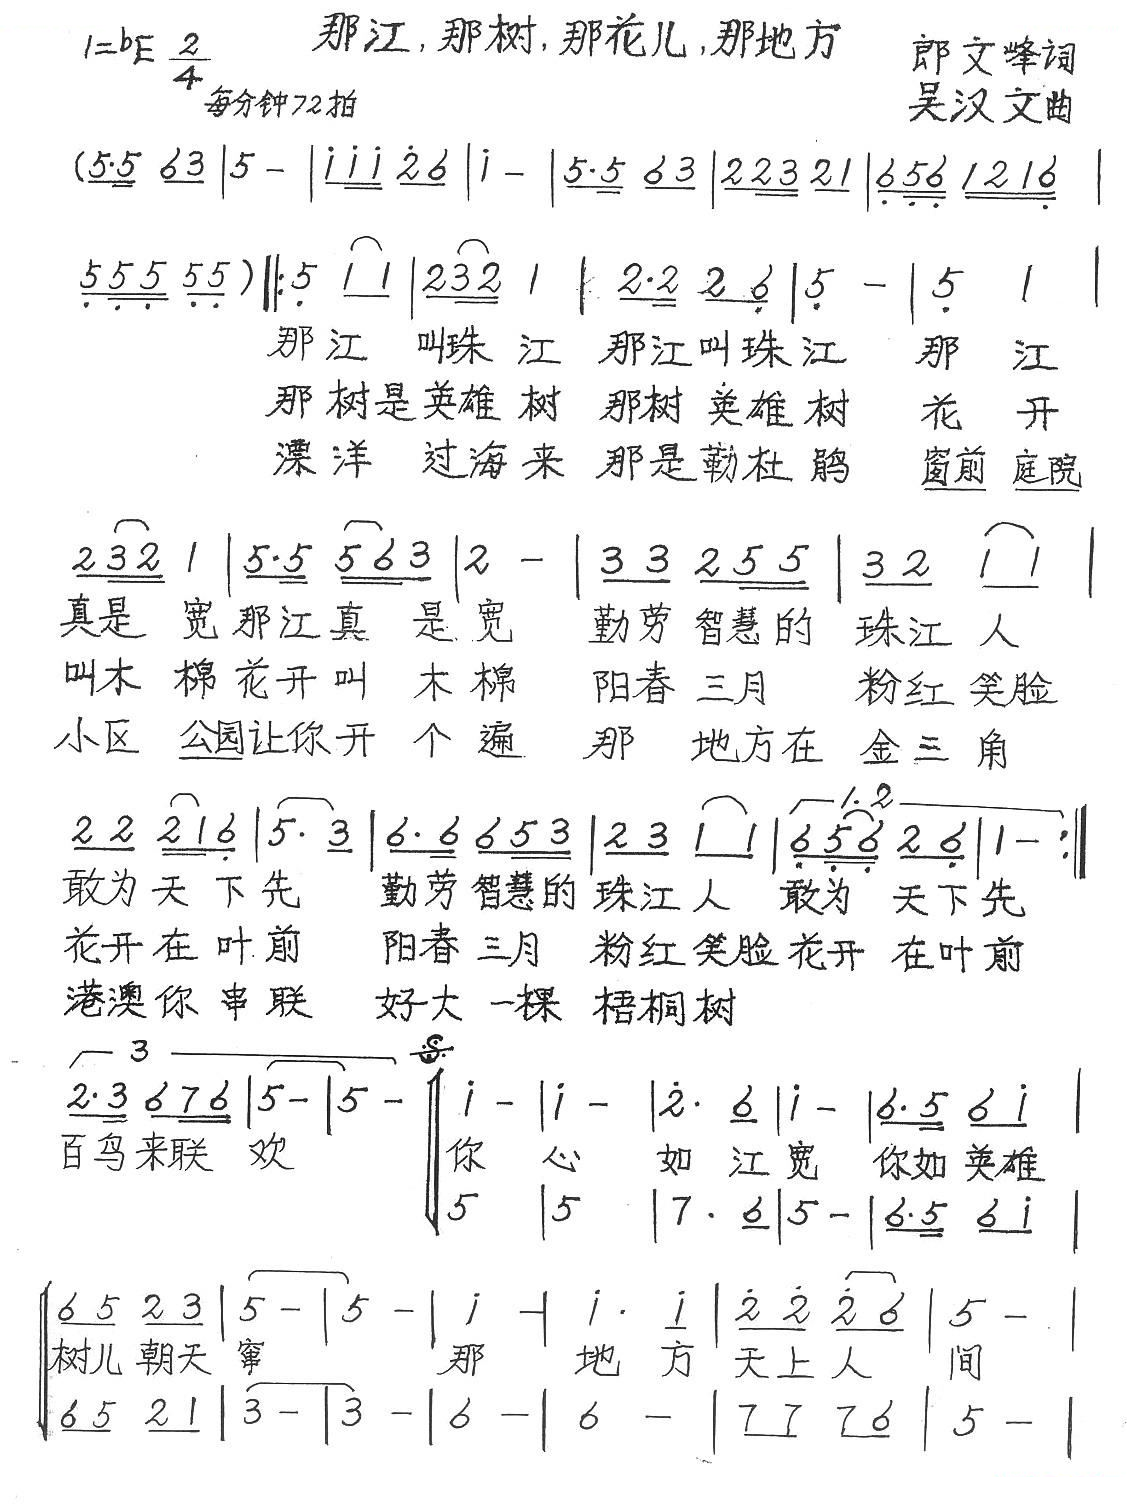 那江，那树，那花儿，那地方
1=bE 2/4
每分钟72拍
郎文峰词
吴汉文曲
(5·5 63 | 5 - | i i i 26 | i - | 5·5 63 | 223 21 | 656 1216 |
555 55) ‖: 5 1 1 | 232 1 | 2·2 2 6 | 5 - | 5 1 |
那江 叫珠江 那江叫珠江 那 江
那树是英雄树 那树英雄树 花 开
漂洋 过海来 那是勒杜鹃 窗前 庭院
232 1 | 5·5 563 | 2 - | 3 3 255 | 32 1 1 |
真是 宽那江真 是宽 勤劳智慧的 珠江人
叫木 棉花开叫 木棉 阳春三月 粉红笑脸
小区 公园让你开 个遍 那 地方在 金三角
22 216 | 5· 3 | 6·6 653 | 23 1 1 | 1.2 656 26 | 1 - :‖
敢为天下先 勤劳智慧的 珠江人 敢为 天下先
花开在叶前 阳春三月 粉红笑脸花开 在叶前
港澳你串联 好大一棵 梧桐树
3
2·3 676 | 5 - | 5 - ‖ i - | i - | 2· 6 | i - | 6·5 6 i |
百鸟来联欢 你 心 如江宽 你如英雄
5 | 5 | 7· 6 | 5 - | 6·5 6 i |
65 23 | 5 - | 5 - | i - | i· i | 2 2 2 6 | 5 - |
树儿朝天窜 那 地方 天上人 间
65 21 | 3 - | 3 - | 6 - | 6 - | 77 76 | 5 - |